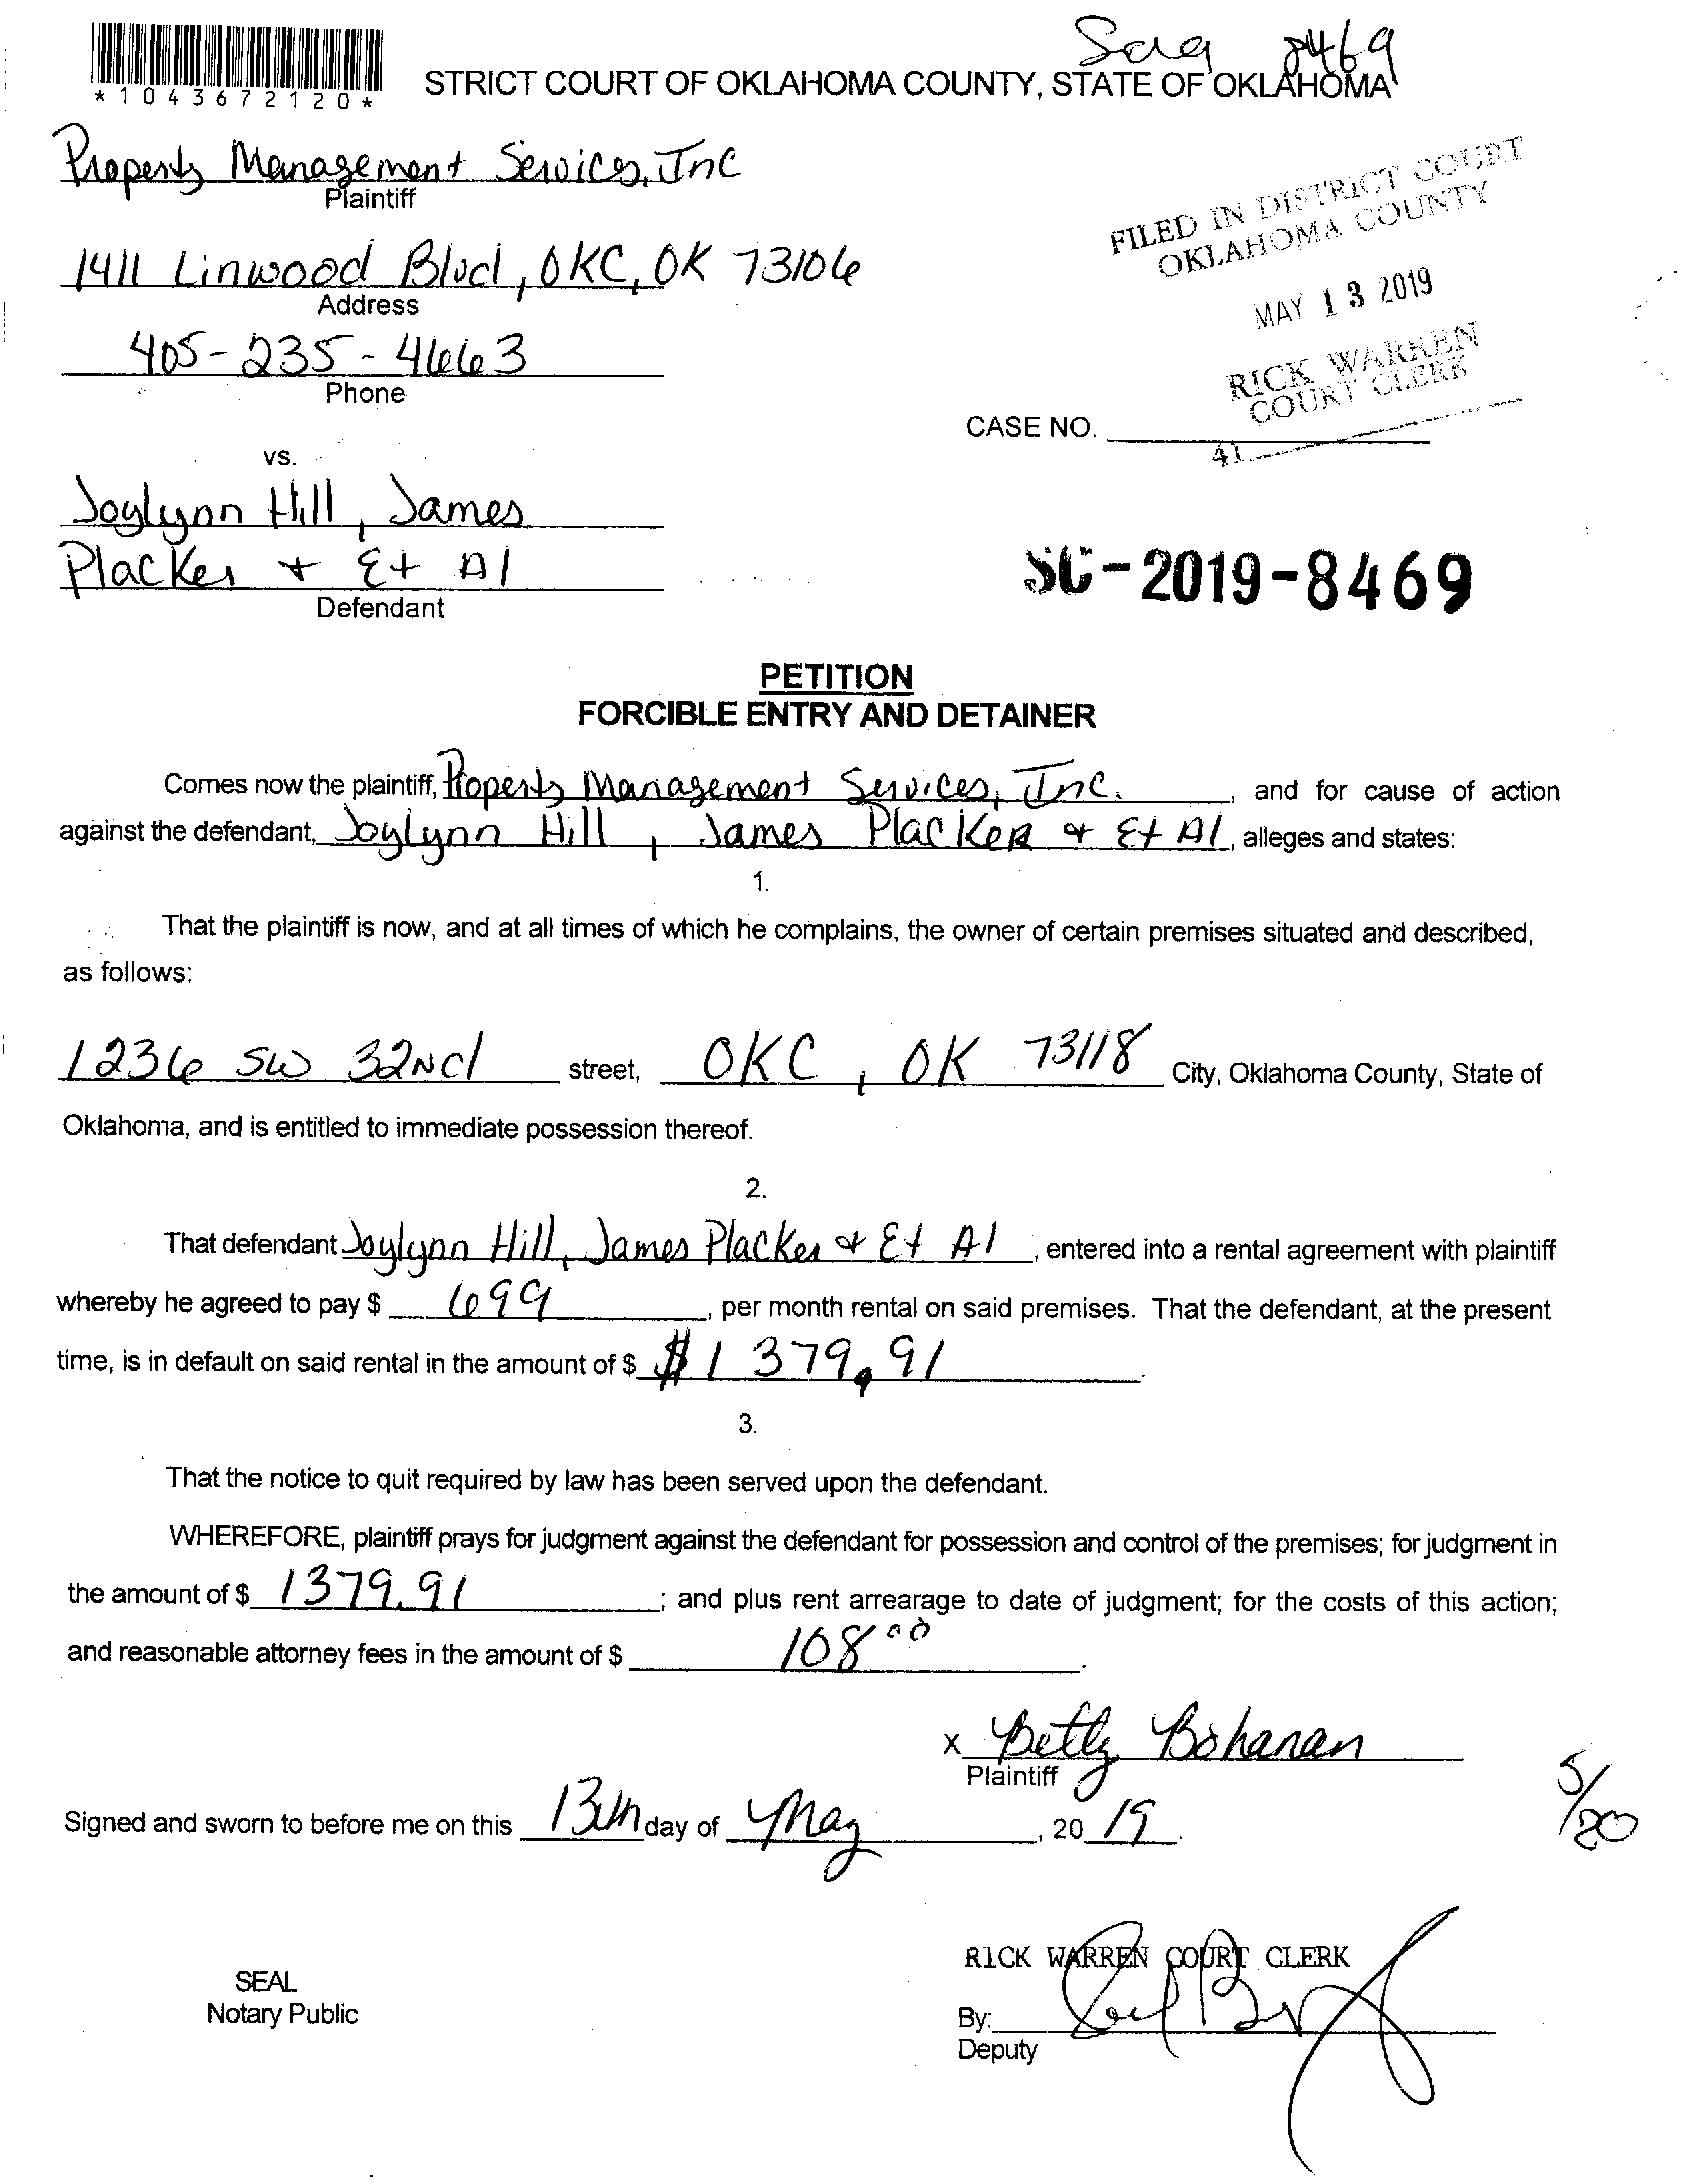 8469
*1043672120*
STRICT COURT OF OKLAHOMA COUNTY, STATE OF OKLAHOMA
Property Management Services, Inc
Plaintiff
1411 Linwood Blvd, OKC, OK 73106
Address
405-235-4663
Phone
FILED IN DISTRICT COURT
OKLAHOMA COUNTY
MAY 13 2019
RICK WARREN
COURT CLERK
41
CASE NO.
vs.
Joylynn Hill, James
Placker + Et Al
Defendant
SC-2019-8469
PETITION
FORCIBLE ENTRY AND DETAINER
Comes now the plaintiff, Property Management Services, Inc. , and for cause of action
against the defendant, Joylynn Hill, James Placker & Et Al, alleges and states:
1.
That the plaintiff is now, and at all times of which he complains, the owner of certain premises situated and described,
as follows:
1236 SW 32nd street, OKC, OK 73118 City, Oklahoma County, State of
Oklahoma, and is entitled to immediate possession thereof.
2.
That defendant Joylynn Hill, James Placker & Et Al , entered into a rental agreement with plaintiff
whereby he agreed to pay $ 699 , per month rental on said premises. That the defendant, at the present
time, is in default on said rental in the amount of $ $1379.91 .
3.
That the notice to quit required by law has been served upon the defendant.
WHEREFORE, plaintiff prays for judgment against the defendant for possession and control of the premises; for judgment in
the amount of $ 1379.91 ; and plus rent arrearage to date of judgment; for the costs of this action;
and reasonable attorney fees in the amount of $ 108.00 .
x Betty Bohanan
Plaintiff
5/20
Signed and sworn to before me on this 13th day of May , 20 19 .
RICK WARREN COURT CLERK
SEAL
Notary Public
By:
Deputy